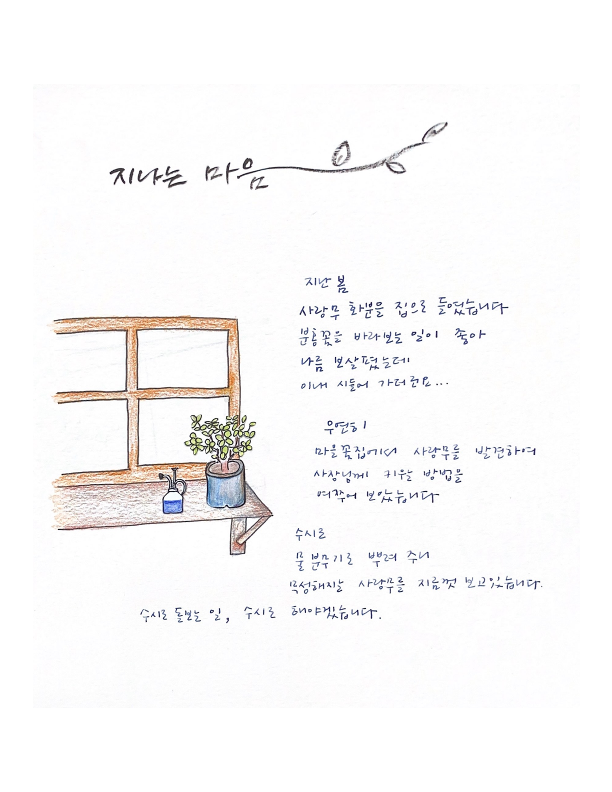 지나는 마음
지난 봄
사랑무 화분을 집으로 들였습니다
분홍꽃을 바라보는 일이 좋아
나름 보살폈는데
이내 시들어 가더군요...
우연히
마을꽃집에서 사랑무를 발견하여
사장님께 키울 방법을
여쭈어 보았습니다
수시로
물 분무기로 뿌려 주니
사랑무를 지금껏 보고있습니다.
수시로 돌보는 일, 수시로 해야겠습니다.